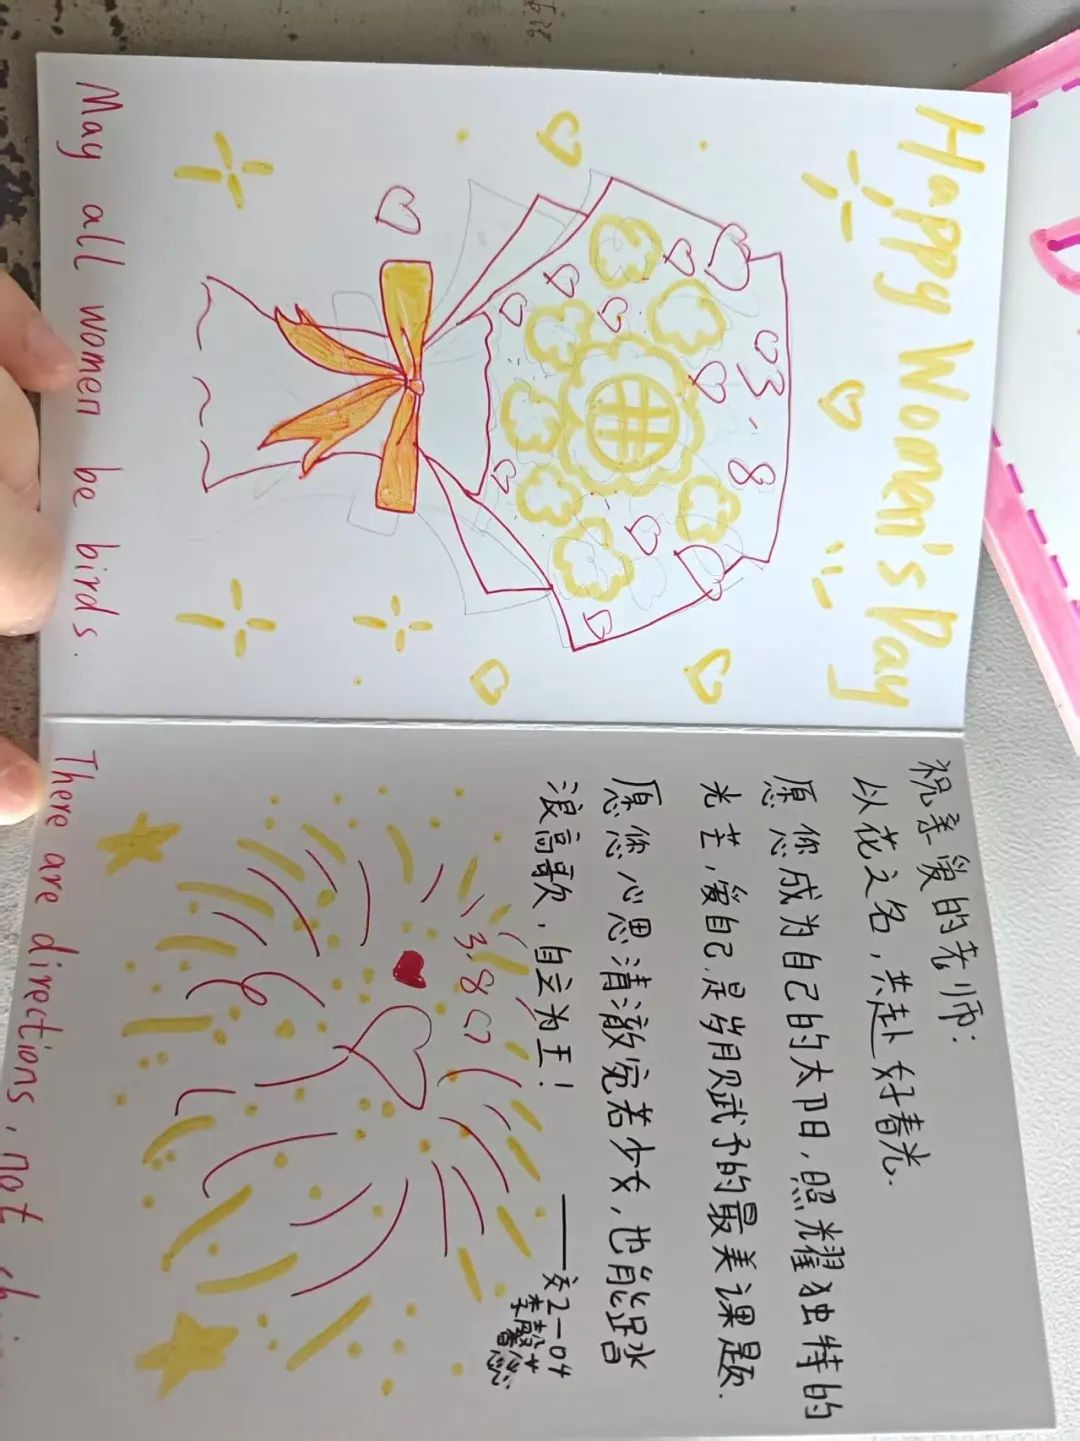 Happy Women's Day
3.8
May all women be birds.
祝亲爱的老师:
以花之名,共赴好春光.
愿您成为自己的太阳,照耀独特的
光芒,爱自己.是岁月赋予的最美课题.
愿您心思清澈宛若少女,也能踏水
浪高歌,自立为王!
2-04
3.8
There are directions, not